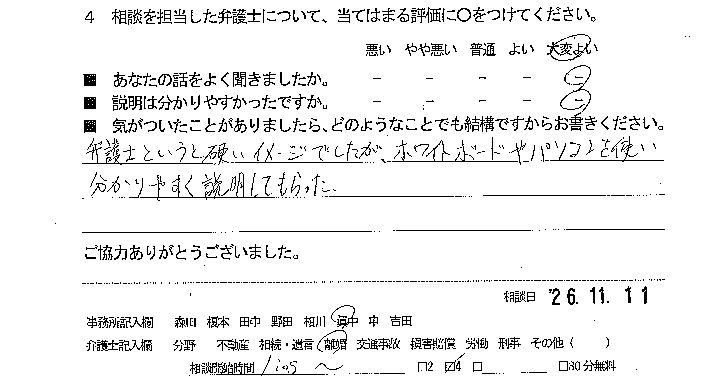 4 相談を担当した弁護士について、当てはまる評価に○をつけてください。
悪い やや悪い 普通 よい 大変よい
■ あなたの話をよく聞きましたか。 － － － － －
■ 説明は分かりやすかったですか。 － － － － －
■ 気がついたことがありましたら、どのようなことでも結構ですからお書きください。
弁護士というと硬いイメージでしたが、ホワイトボードやパソコンを使い
分かりやすく説明してもらった。
ご協力ありがとうございました。
相談日 '26.11.11
事務所記入欄 森川 榎本 田中 野田 相川 吉田
弁護士記入欄 分野 不動産 相続・遺言 離婚 交通事故 損害賠償 労働 刑事 その他（ ）
相談開始時間 ～ □2 ☑4 □ □30分無料